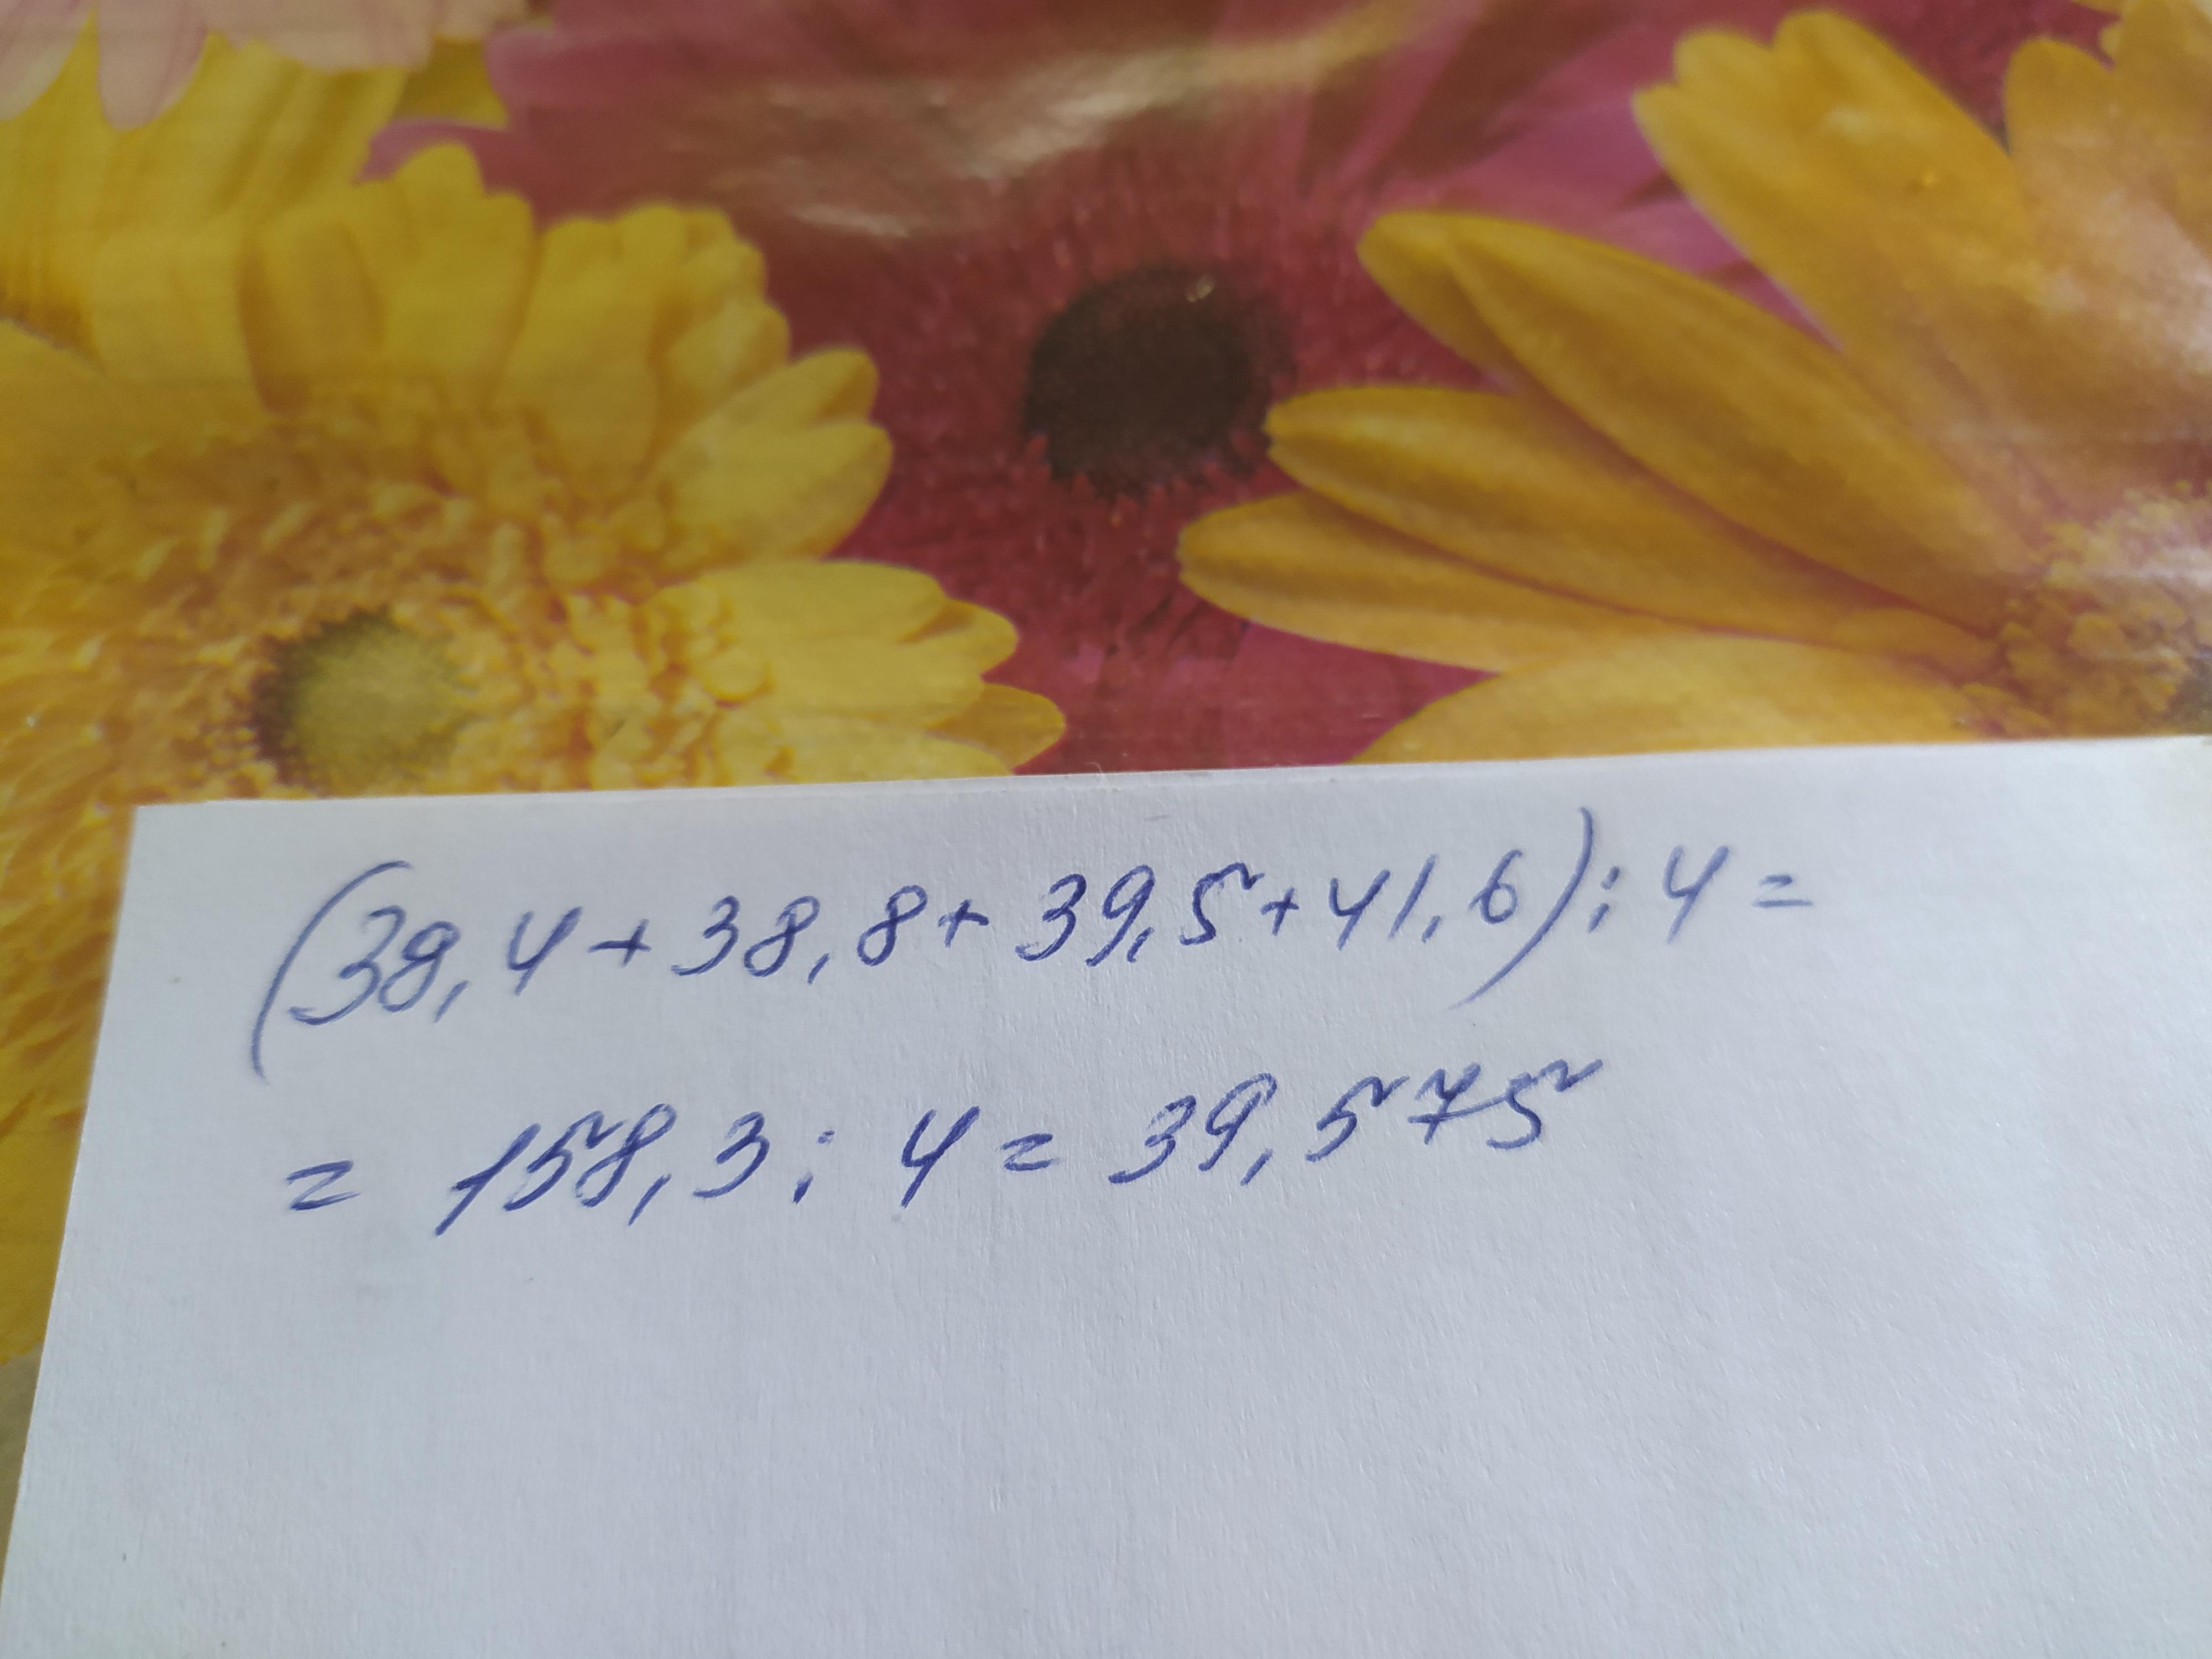 (38,4+38,8+39,5+41,6):4=
= 158,3:4=39,575